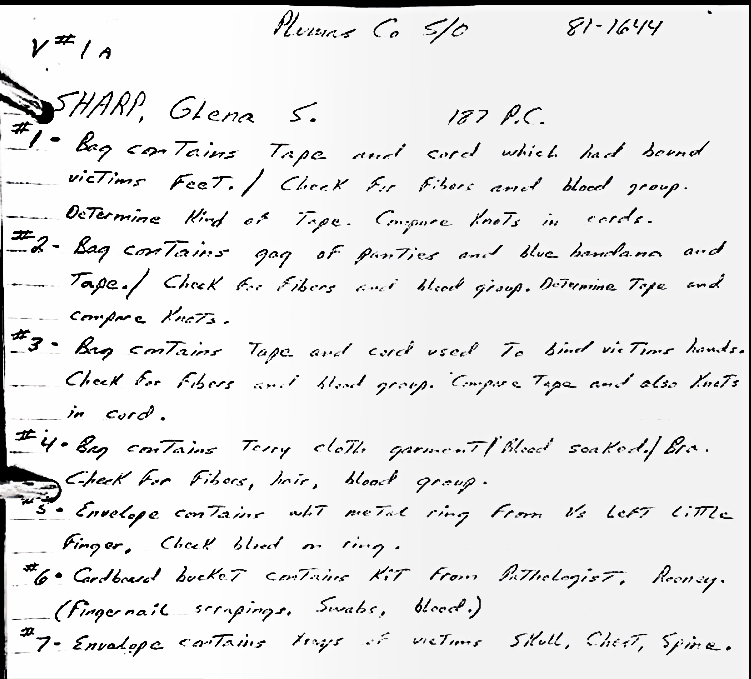 Plumas Co S/O 81-1644
V#1A
SHARP, Glena S. 187 P.C.
#1- Bag contains Tape and cord which had bound
victims Feet./ Check For Fibers and blood group.
Determine Kind of Tape. Compare Knots in cords.
#2- Bag contains gag of panties and blue bandana and
Tape./ Check For Fibers and blood group. Determine Tape and
compare Knots.
#3- Bag contains Tape and cord used To bind victims hands.
Check For Fibers and blood group. Compare Tape and also Knots
in cord.
#4- Bag contains Terry cloth garment/Blood soaked./Bra.
Check For Fibers, hair, blood group.
#5- Envelope contains wht metal ring From Vs Left Little
Finger. Check blood on ring.
#6- Cardboard bucket contains Kit From Pathologist, Rooney.
(Fingernail scrapings, Swabs, blood.)
#7- Envelope contains Xrays of victims Skull, Chest, Spine.